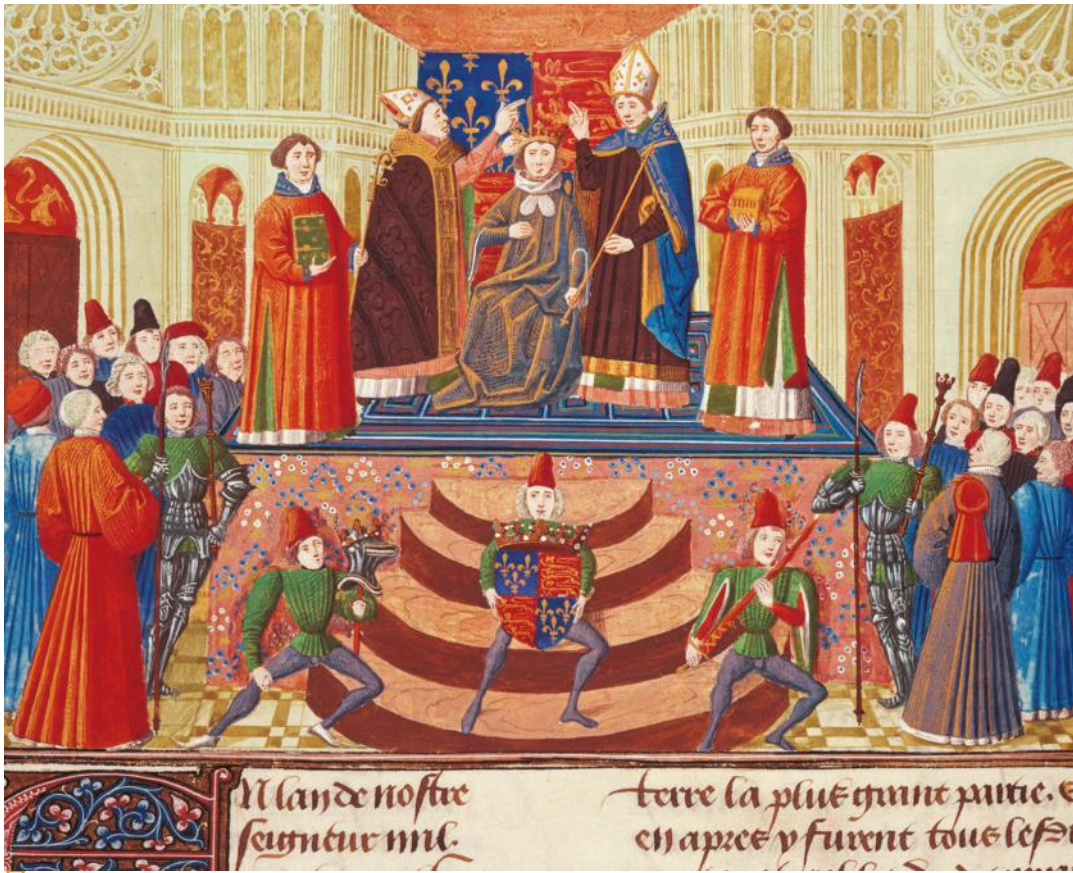 N lan de nostre
seigneur mil.
terre la plus grant partie.
en apres y furent tous les